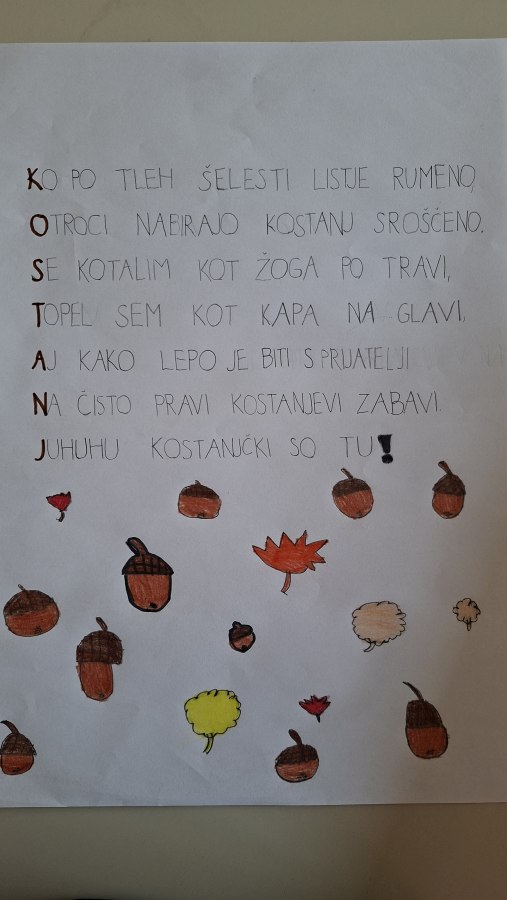 KO PO TLEH ŠELESTI LISTJE RUMENO,
OTROCI NABIRAJO KOSTANJ SROŠČENO.
SE KOTALIM KOT ŽOGA PO TRAVI,
TOPEL SEM KOT KAPA NA GLAVI,
AJ KAKO LEPO JE BITI S PRIJATELJI
NA ČISTO PRAVI KOSTANJEVI ZABAVI.
JUHUHU KOSTANJČKI SO TU!